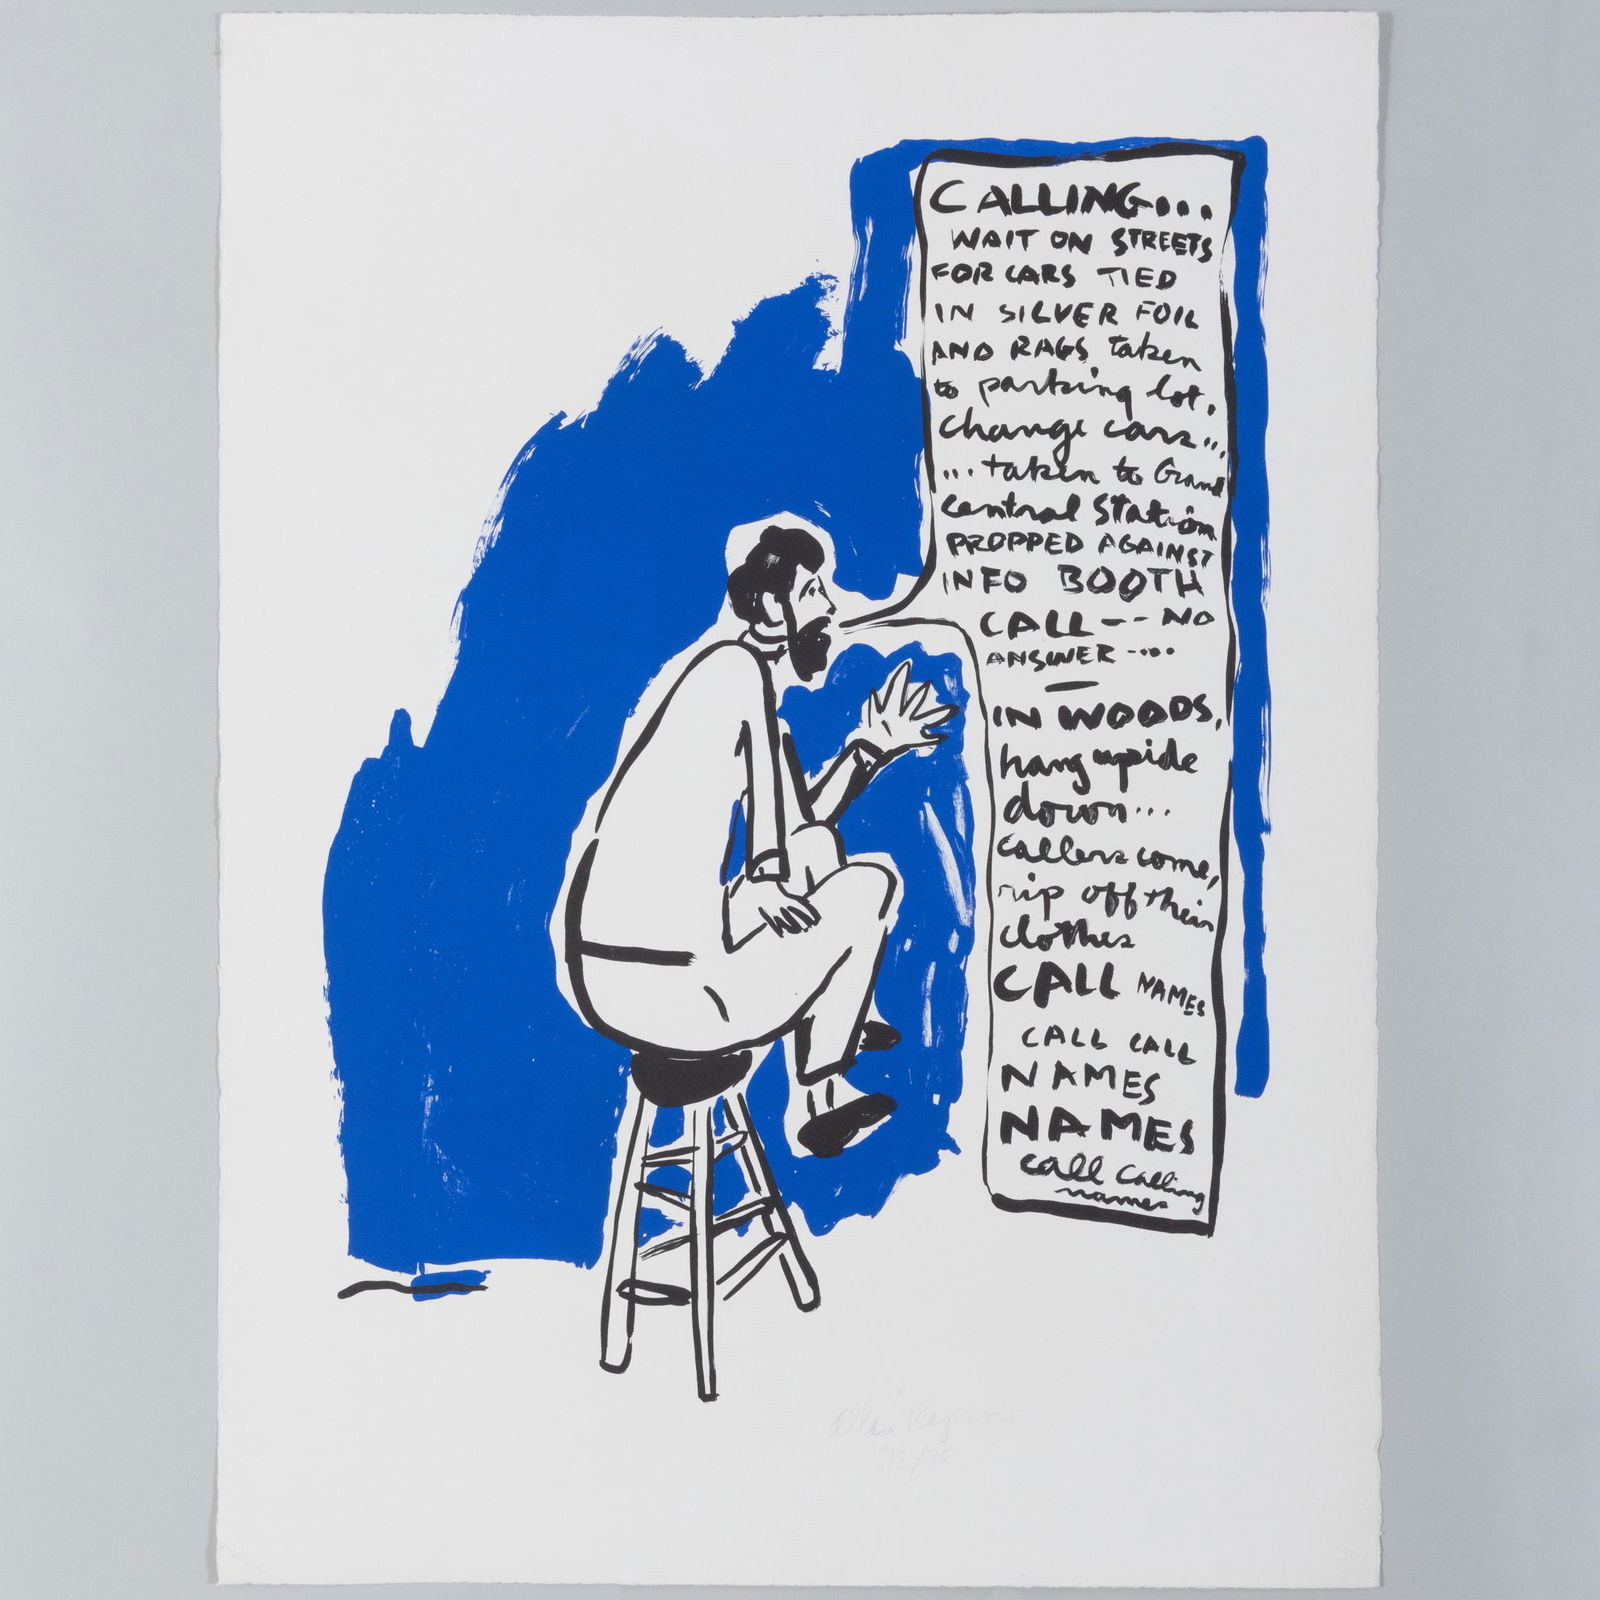 CALLING...
WAIT ON STREETS
FOR CARS TIED
IN SILVER FOIL
AND RAGS taken
to parking lot.
Change cars...
...taken to Grand
Central Station
PROPPED AGAINST
INFO BOOTH
CALL -- NO
ANSWER -...
—
IN WOODS,
hang upside
down...
callers come,
rip off their
clothes
CALL NAMES
CALL CALL
NAMES
NAMES
call calling
names
Allan Kaprow
72/75